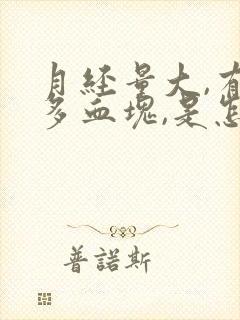 月經量大,有
多血塊,是怎
普諾斯